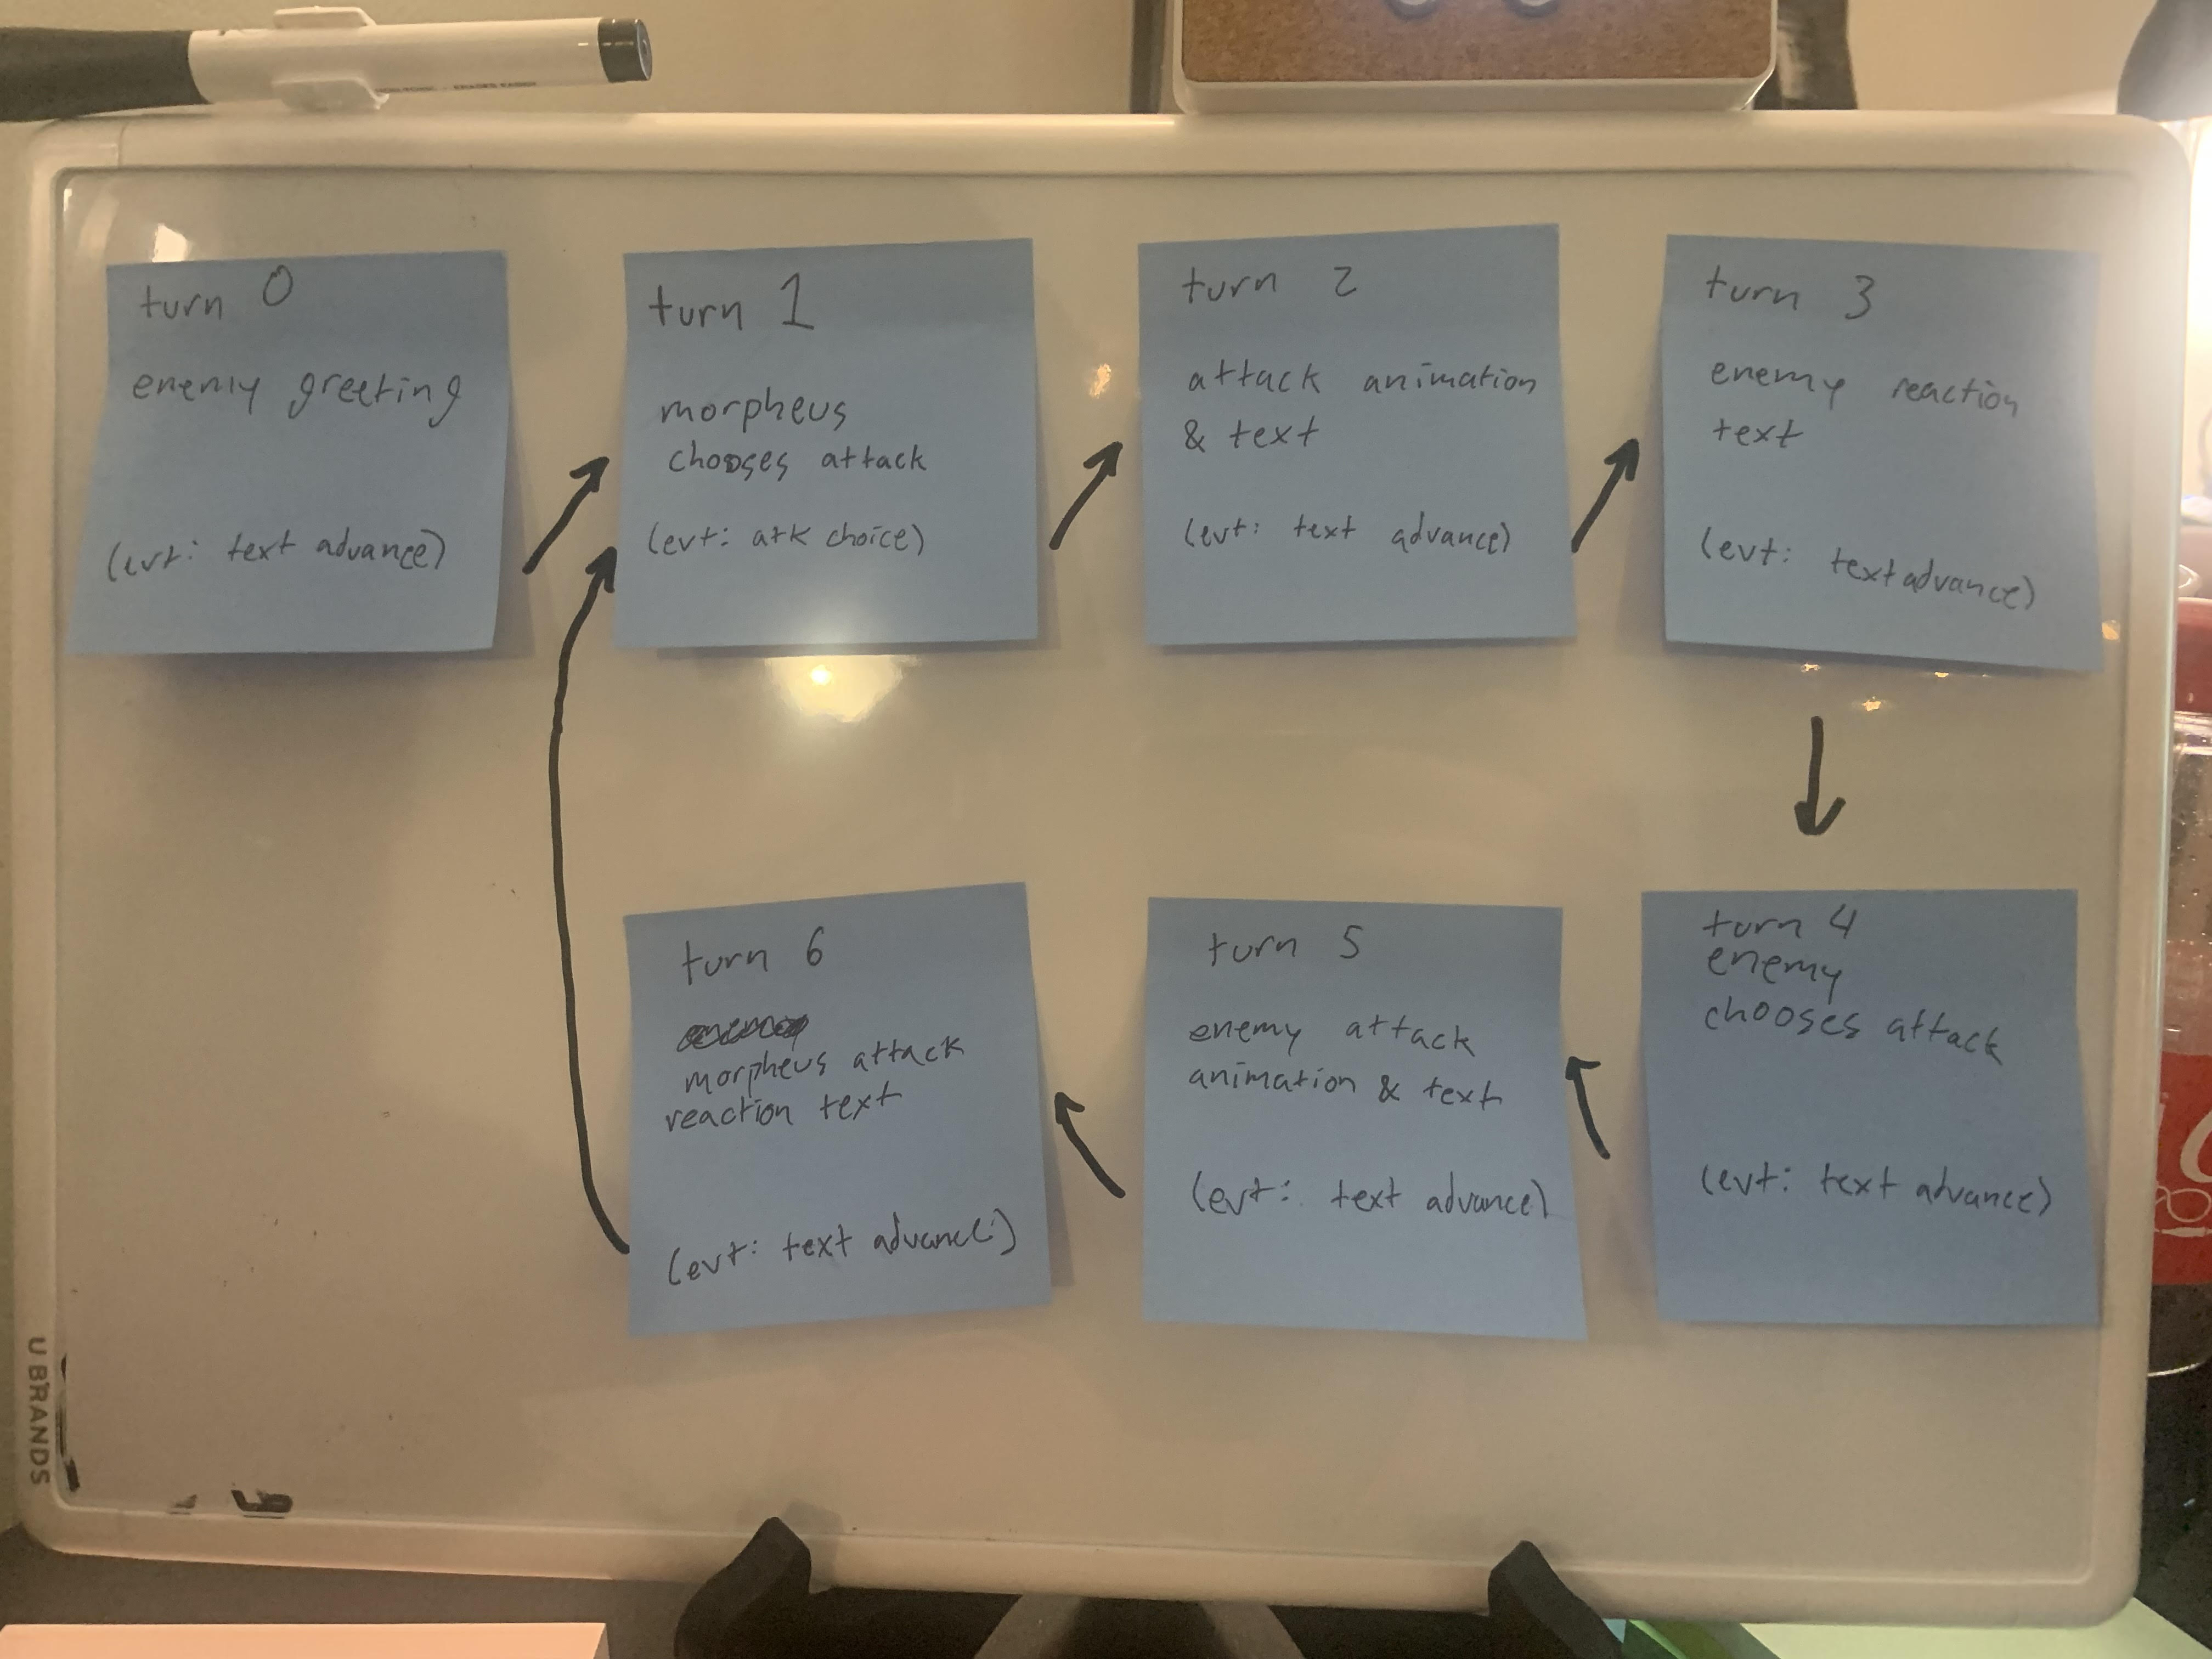 turn 0
enemy greeting
(evt: text advance)
turn 1
morpheus
chooses attack
(evt: atk choice)
turn 2
attack animation
& text
(evt: text advance)
turn 3
enemy reaction
text
(evt: text advance)
turn 4
enemy
chooses attack
(evt: text advance)
turn 5
enemy attack
animation & text
(evt: text advance)
turn 6
morpheus attack
reaction text
(evt: text advance)
U BRANDS